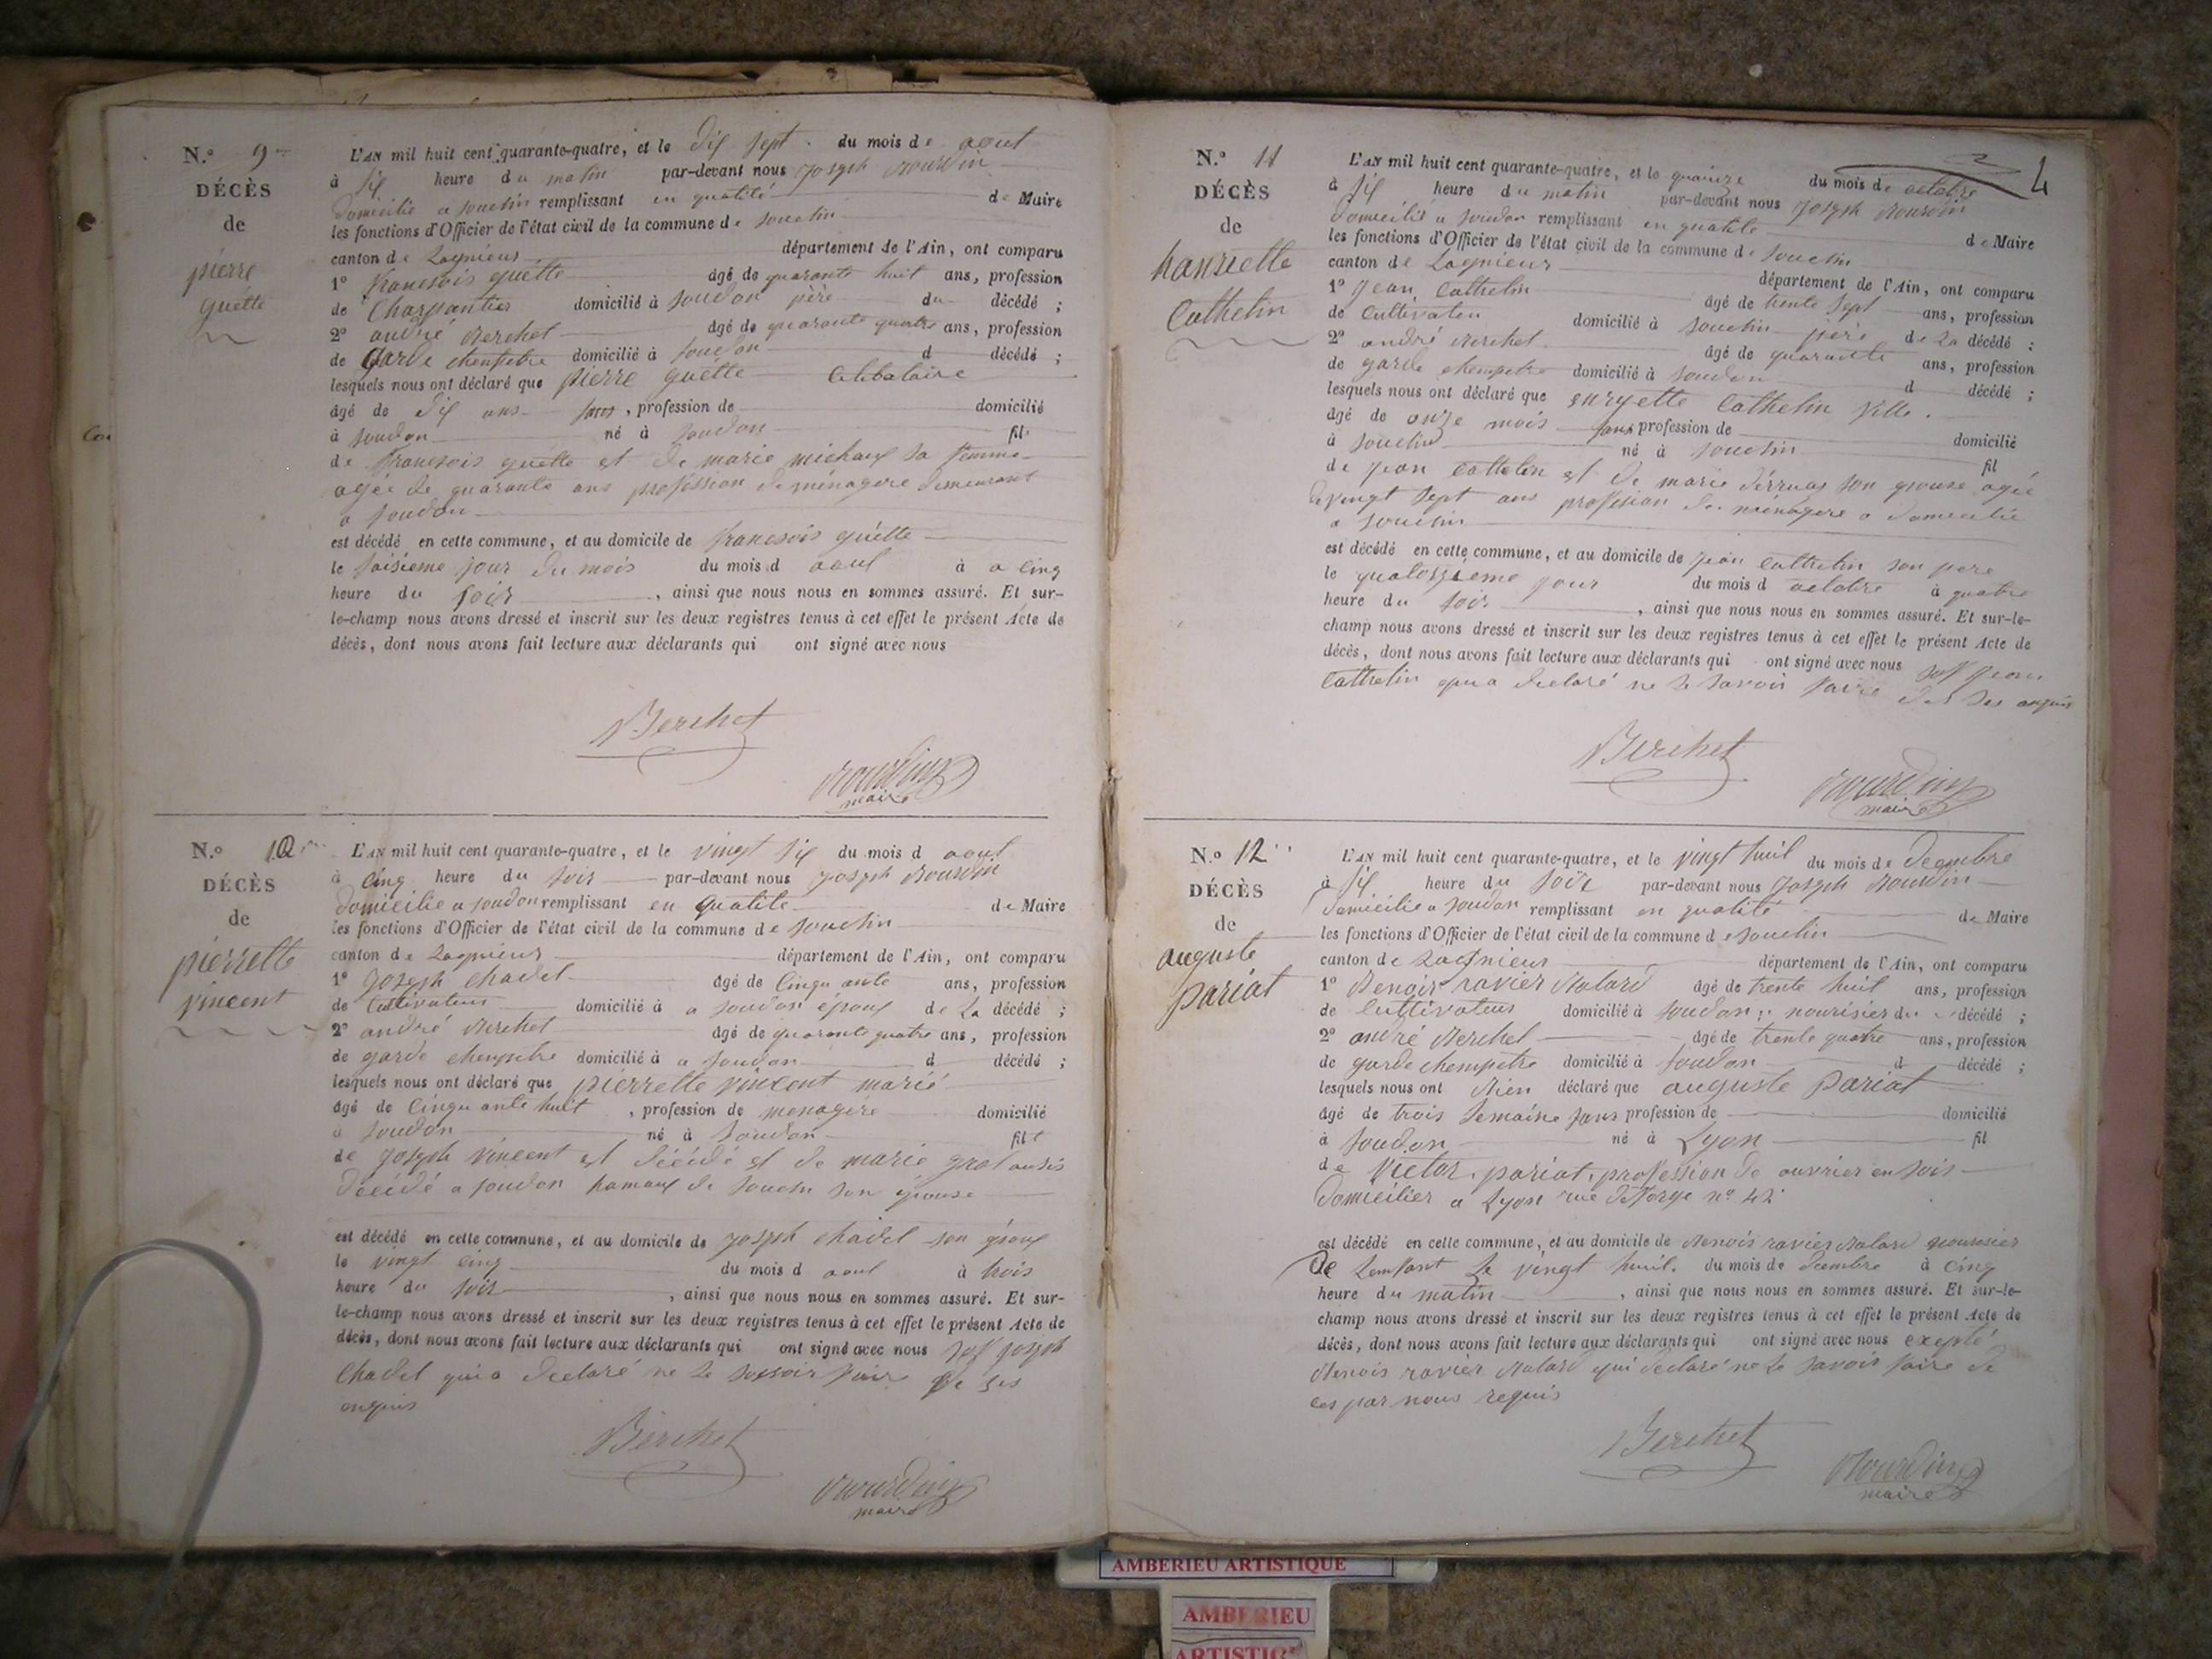 N.º 9
DÉCÈS
de
pierre
guétte
L'AN mil huit cent quarante-quatre, et le dix sept du mois de aout
à six heure du matin par-devant nous joseph Bourdin
domicilié a souclin remplissant en qualité de Maire
les fonctions d'Officier de l'état civil de la commune de souclin
canton de Lagnieus département de l'Ain, ont comparu
1º francsois guétte âgé de quarante huit ans, profession
de Charpantier domicilié à soudon père du décédé ;
2º andrié Berchet âgé de quarante quatre ans, profession
de garde chempetre domicilié à soudon d décédé ;
lesquels nous ont déclaré que pierre guétte Celibataire
âgé de dix ans sans, profession de domicilié
à soudon né à soudon fils
de francsois guétte et de marie michaux sa femme
agée de quarante ans profession de ménagere demeurant
a soudon
est décédé en cette commune, et au domicile de francsois guétte
le saisieme jour du mois du mois d aout à a cinq
heure du soir, ainsi que nous nous en sommes assuré. Et sur-
le-champ nous avons dressé et inscrit sur les deux registres tenus à cet effet le présent Acte de
décès, dont nous avons fait lecture aux déclarants qui ont signé avec nous
Berchet
Bourdin
maire
N.º 10
DÉCÈS
de
pierrette
vincent
L'AN mil huit cent quarante-quatre, et le vingt six du mois d aout
à cinq heure du soir par-devant nous joseph Bourdin
domicilie a soudon remplissant en qualite de Maire
les fonctions d'Officier de l'état civil de la commune de souclin
canton de Lagnieus département de l'Ain, ont comparu
1º joseph chadel âgé de cinquante ans, profession
de Cultivateur domicilié à a soudon époux de La décédé ;
2º andré Berchet âgé de quarante quatre ans, profession
de garde chempetre domicilié à a soudon d décédé ;
lesquels nous ont déclaré que pierrette vincent marié
âgé de cinquante huit, profession de menagere domicilié
à soudon né à soudon fill
de joseph vincent et décédé et de marie
décédé a soudon hamaux de souclin son épouse
est décédé en cette commune, et au domicile de joseph chadel son époux
le vingt cinq du mois d aout à trois
heure du soir, ainsi que nous nous en sommes assuré. Et sur-
le-champ nous avons dressé et inscrit sur les deux registres tenus à cet effet le présent Acte de
décès, dont nous avons fait lecture aux déclarants qui ont signé avec nous joseph
Chadel qui a declaré ne le savoir faire de ses
Berchet
Bourdin
maire
4
N.º 11
DÉCÈS
de
hanriette
Cathelin
L'AN mil huit cent quarante-quatre, et le quainze du mois de octobre
à six heure du matin par-devant nous joseph Bourdin
domicilié a soudon remplissant en qualité de Maire
les fonctions d'Officier de l'état civil de la commune de souclin
canton de Lagnieur département de l'Ain, ont comparu
1º jean Cathelin âgé de trente sept ans, profession
de Cultivateu domicilié à souclin père de La décédé ;
2º andré Berchet âgé de quarante ans, profession
de garde chempetre domicilié à soudon d décédé ;
lesquels nous ont déclaré que Cathelin fille.
âgé de onze mois sans profession de domicilié
à souclin né à souclin fil
de jean Cathelin et de marie son epouse agée
de vingt sept ans profession de ménagere a domicilie
a souclin
est décédé en cette commune, et au domicile de jean Cathelin son pere
le quatorzieme jour du mois d octobre à quatre
heure du soir, ainsi que nous nous en sommes assuré. Et sur-le-
champ nous avons dressé et inscrit sur les deux registres tenus à cet effet le présent Acte de
décès, dont nous avons fait lecture aux déclarants qui ont signé avec nous jean
Cathelin qui a declaré ne le savoir faire de ses
Berchet
Bourdin
maire
N.º 12
DÉCÈS
de
auguste
pariat
L'AN mil huit cent quarante-quatre, et le vingt huit du mois de decembre
à six heure du soir par-devant nous joseph Bourdin
domicilie a soudon remplissant en qualité de Maire
les fonctions d'Officier de l'état civil de la commune de souclin
canton de Lagnieur département de l'Ain, ont comparu
1º Benois ravier Balard âgé de trente huit ans, profession
de cultivateur domicilié à soudon nourisier du décédé ;
2º andré Berchet âgé de trente quatre ans, profession
de garde chempetre domicilié à soudon d décédé ;
lesquels nous ont Bien déclaré que auguste pariat
âgé de trois semaine sans profession de domicilié
à soudon né à Lyon fil
de victor pariat, profession de ouvrier en soie
domicilier a Lyon rue nº 42
est décédé en cette commune, et au domicile de Benois ravier Balard nourisier
De Lenfant Le vingt huit. du mois de decembre à cinq
heure du matin, ainsi que nous nous en sommes assuré. Et sur-le-
champ nous avons dressé et inscrit sur les deux registres tenus à cet effet le présent Acte de
décès, dont nous avons fait lecture aux déclarants qui ont signé avec nous excepté
Benois ravier Balard qui declaré ne le savoir faire de
ces par nous requis
Berchet
Bourdin
maire
AMBERIEU ARTISTIQUE
AMBERIEU
ARTISTIQUE